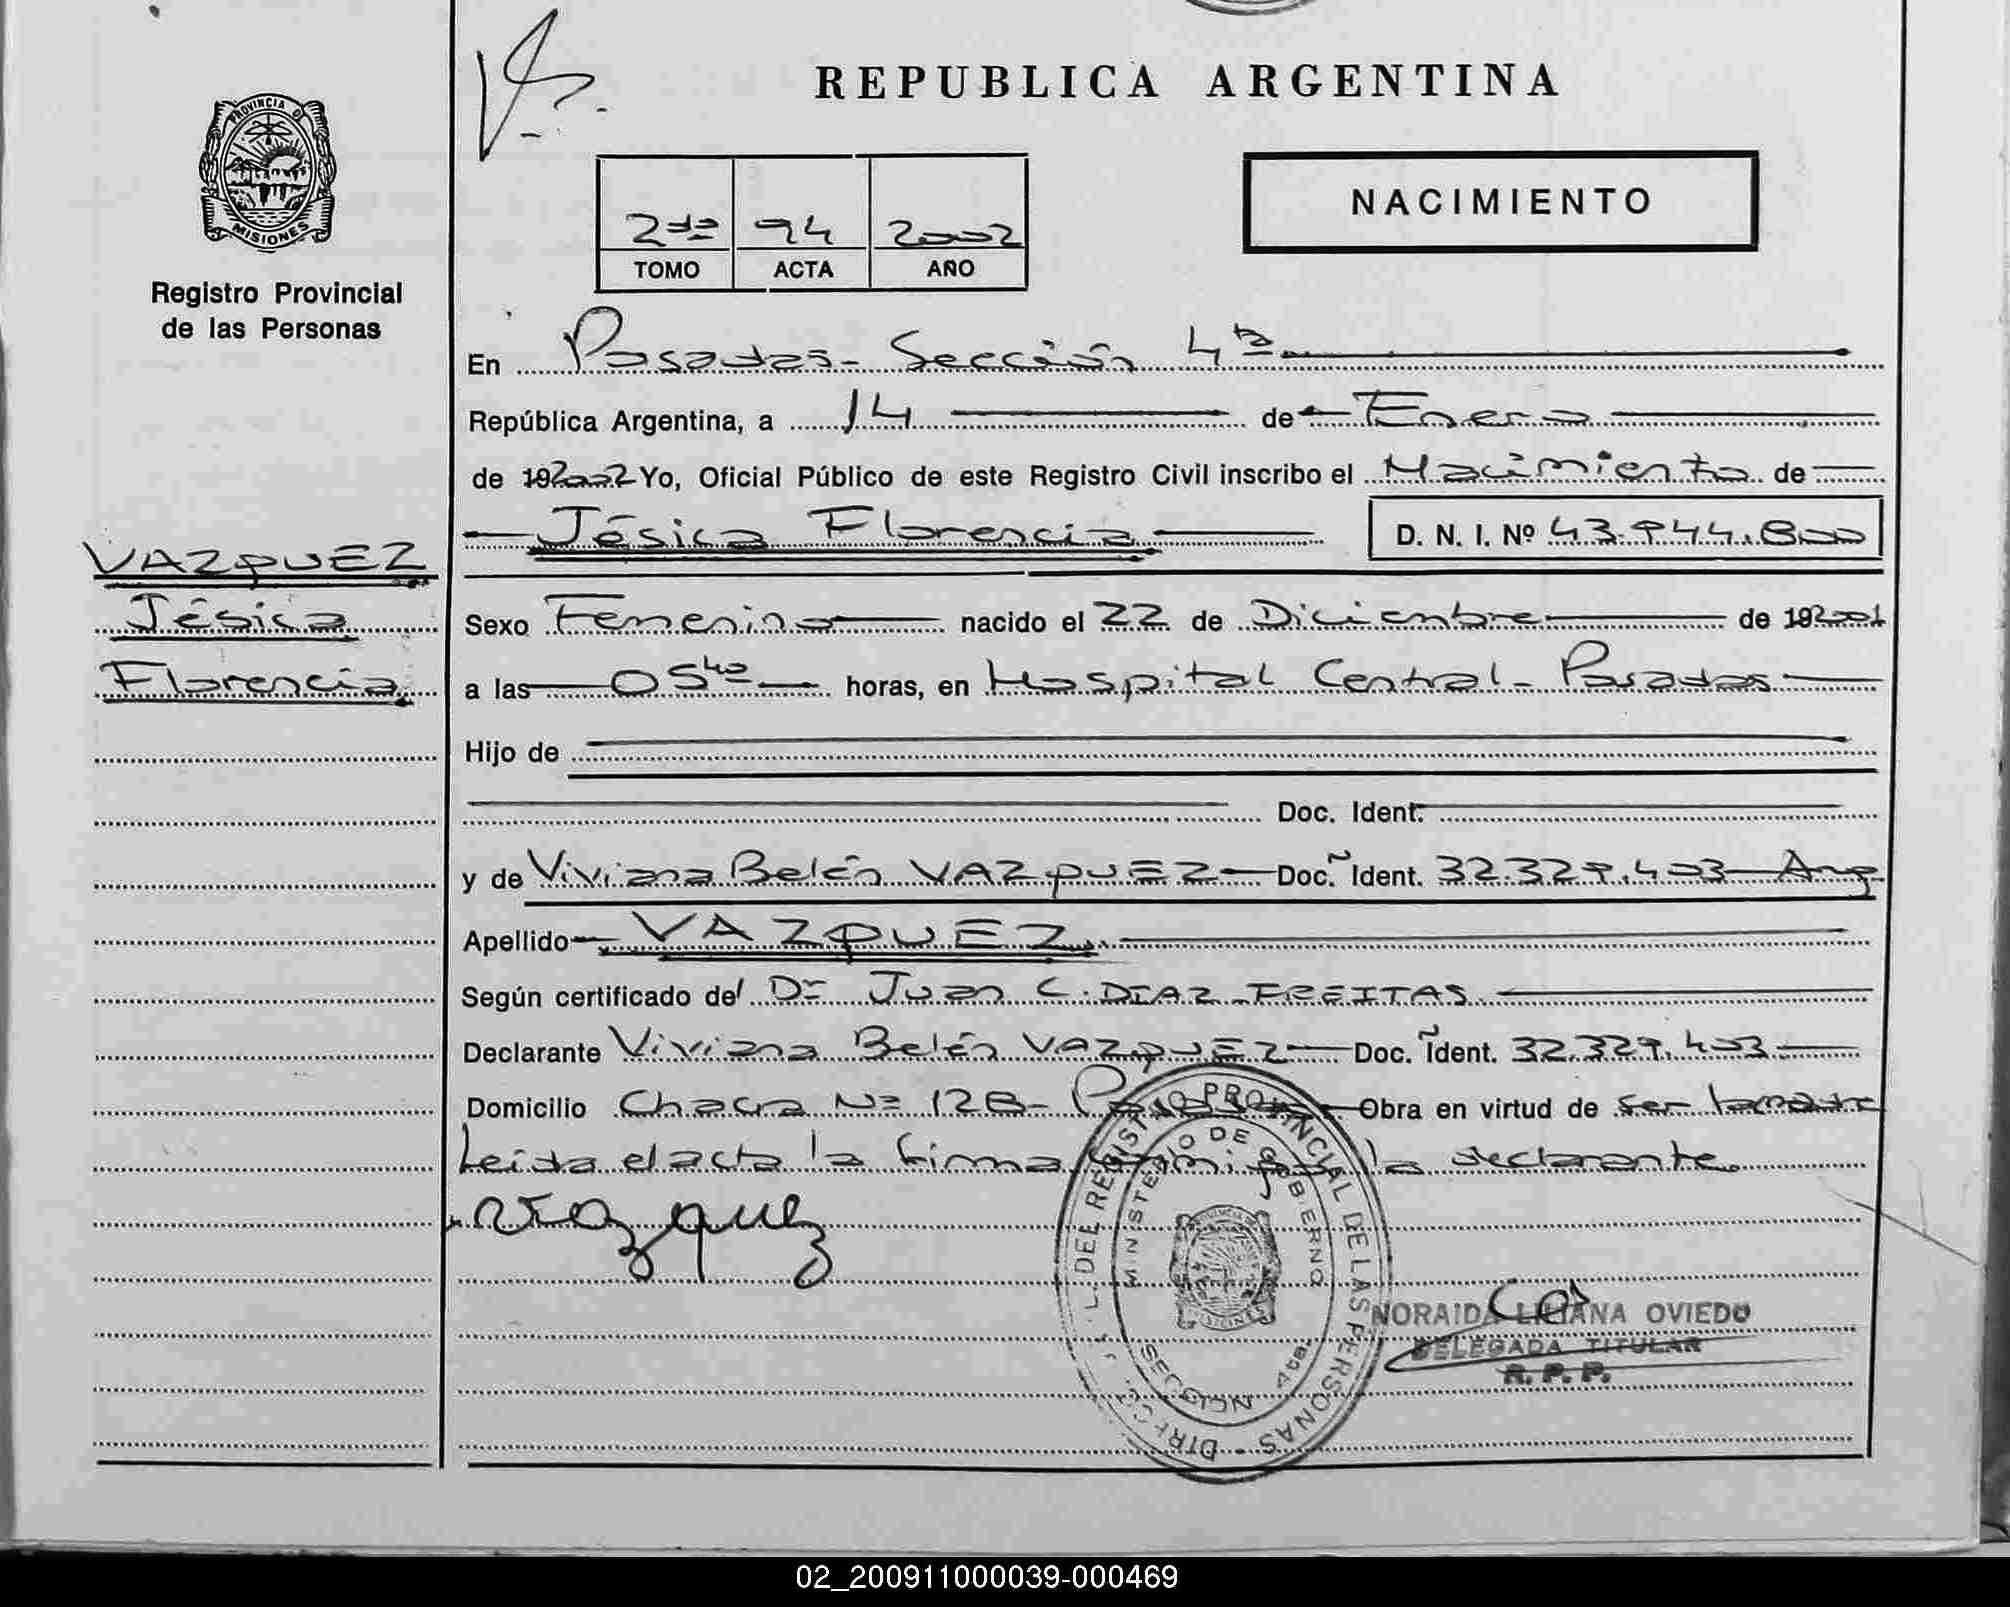 REPUBLICA ARGENTINA
PROVINCIA DE
MISIONES
Registro Provincial
de las Personas
2do 94 2002
TOMO ACTA AÑO
NACIMIENTO
En Posadas - Sección 4ta
República Argentina, a 14 de Enero
de 192002 Yo, Oficial Público de este Registro Civil inscribo el Nacimiento de
Jésica Florencia D. N. I. Nº 43.944.800
VAZQUEZ
Jésica
Florencia
Sexo Femenino nacido el 22 de Diciembre de 192001
a las 05 40 horas, en Hospital Central - Posadas
Hijo de
Doc. Ident.
y de Viviana Belén VAZQUEZ Doc. Ident. 32.329.403 Arg.
Apellido VAZQUEZ
Según certificado del Dr Juan C. DIAZ FREITAS
Declarante Viviana Belén VAZQUEZ Doc. Ident. 32.329.403
Domicilio Chacra Nº 128 - Posadas Obra en virtud de ser la madre
Leida el acta la firma conmigo la declarante.
Vazquez
DIRECC. GRAL. DEL REGISTRO PROVINCIAL DE LAS PERSONAS
MINISTERIO DE GOBIERNO
SECCION 4ta.
NORAIDA LILIANA OVIEDO
DELEGADA TITULAR
R. P. P.
02_200911000039-000469